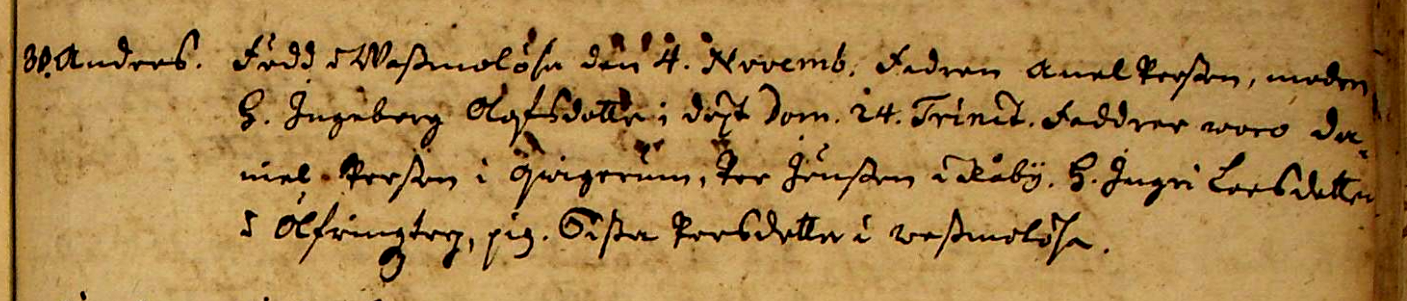 30. Anders. Född i Wäßmolösa den 4. Novemb. Fadren Auel Person, moden
H. Ingeborg Olofsdotter; döpt Dom. 24. Trinit. Faddrar woro Da-
niel Person i Qwigerum, Per Jönßon i Råby, H. Ingri Larsdotter
i Ölfringztorp, pig. Sißa Persdotter i wäßmolösa.